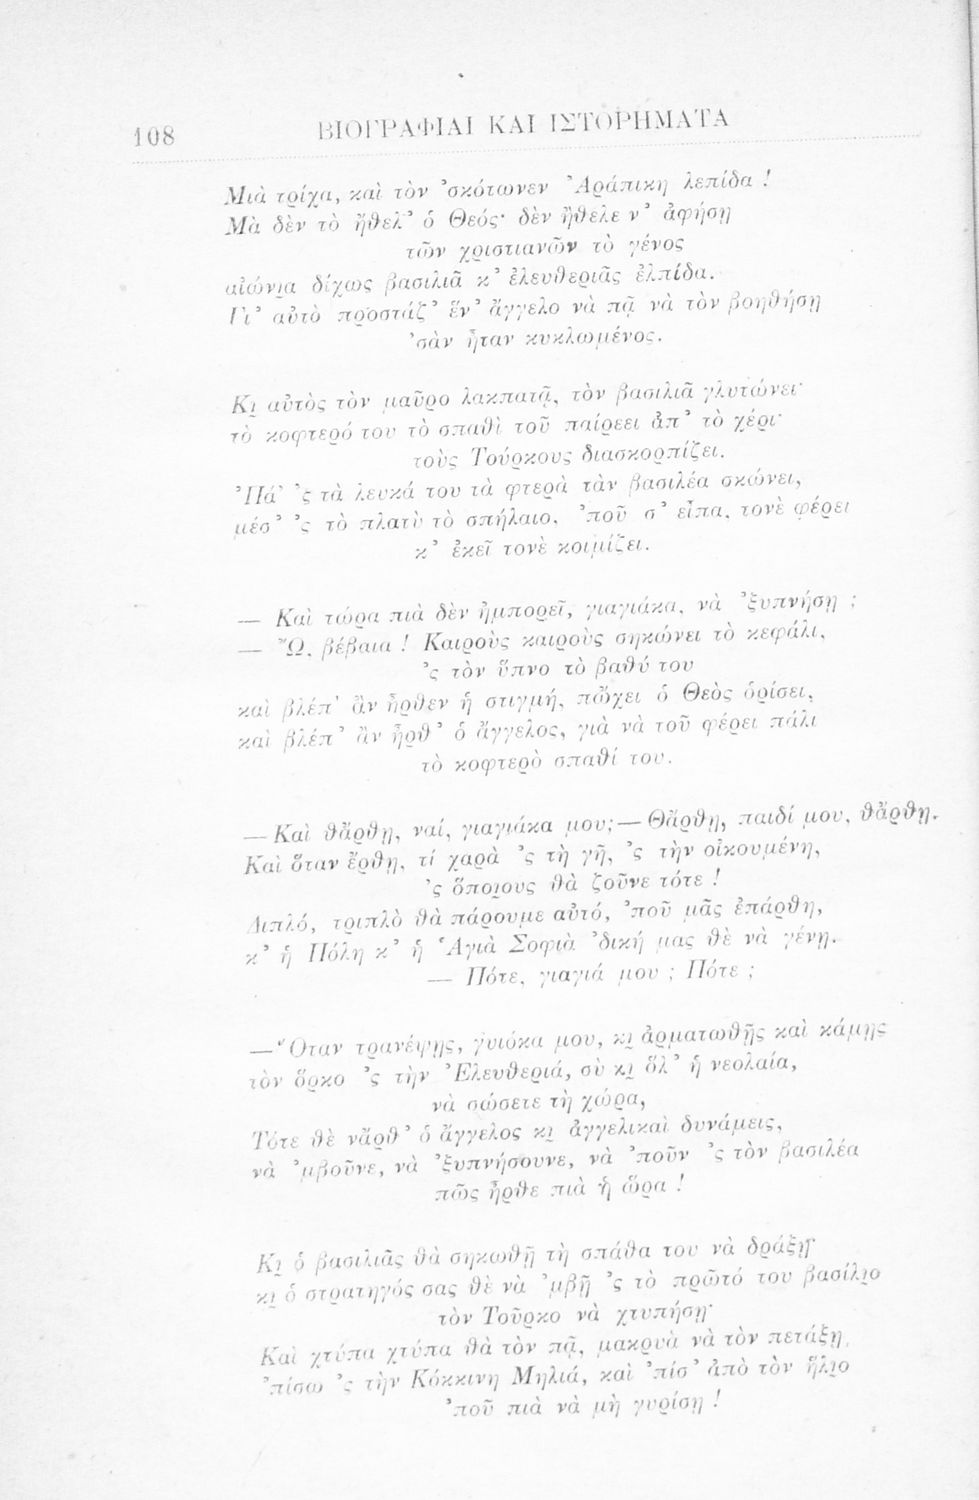 108
ΒΙΟΓΡΑΦΙΑΙ ΚΑΙ ΙΣΤΟΡΗΜΑΤΑ
Μιὰ τρίχα, καὶ τὸν ’σκότωνεν Ἀράπικη λεπίδα !
Μὰ δὲν τὸ ἤθελ’ ὁ Θεός· δὲν ἤθελε ν’ ἀφήσῃ
τῶν χριστιανῶν τὸ γένος
αἰώνια δίχως βασιλιᾶ κ’ ἐλευθεριᾶς ἐλπίδα.
Γι’ αὐτὸ προστάζ’ ἕν’ ἄγγελο νὰ πᾷ νὰ τὸν βοηθήσῃ
’σὰν ἦταν κυκλωμένος.
Κι̯ αὐτὸς τὸν μαῦρο λακπατᾷ, τὸν βασιλιᾶ γλυτώνει·
τὸ κοφτερό του τὸ σπαθὶ τοῦ παίρεει ἀπ’ τὸ χέρι·
τοὺς Τούρκους διασκορπίζει.
’Πά’ ’ς τὰ λευκά του τὰ φτερὰ τὰν βασιλέα σκώνει,
μέσ’ ’ς τὸ πλατὺ τὸ σπήλαιο, ’ποῦ σ’ εἶπα, τονὲ φέρει
κ’ ἐκεῖ τονὲ κοιμίζει.
— Καὶ τώρα πιὰ δὲν ἠμπορεῖ, γιαγιάκα, νὰ ’ξυπνήσῃ ;
— Ὤ, βέβαια ! Καιροὺς καιροὺς σηκώνει τὸ κεφάλι,
’ς τὸν ὕπνο τὸ βαθύ του
καὶ βλέπ’ ἂν ἦρθεν ἡ στιγμή, πὤχει ὁ Θεὸς ὁρίσει,
καὶ βλέπ’ ἂν ἦρθ’ ὁ ἄγγελος, γιὰ νὰ τοῦ φέρει πάλι
τὸ κοφτερὸ σπαθί του.
— Καὶ θἄρθῃ, ναί, γιαγιάκα μου; — Θἄρθῃ, παιδί μου, θἄρθῃ.
Καὶ ὅταν ἔρθῃ, τί χαρὰ ’ς τὴ γῆ, ’ς τὴν οἰκουμένη,
’ς ὅποι̯ους θὰ ζοῦνε τότε !
Διπλό, τριπλὸ θὰ πάρουμε αὐτό, ’ποῦ μᾶς ἐπάρθη,
κ’ ἡ Πόλη κ’ ἡ Ἁγιὰ Σοφιὰ ’δική μας θὲ νὰ γένῃ.
— Πότε, γιαγιά μου ; Πότε ;
— Ὅταν τρανέψῃς, γυιόκα μου, κι̯ ἀρματωθῇς καὶ κάμῃς
τὸν ὅρκο ’ς τὴν Ἐλευθεριά, σὺ κι̯ ὅλ’ ἡ νεολαία,
νὰ σώσετε τὴ χώρα,
Τότε θὲ νἄρθ’ ὁ ἄγγελος κι̯ ἀγγελικαὶ δυνάμεις,
νὰ ’μβοῦνε, νὰ ’ξυπνήσουνε, νὰ ’ποῦν ’ς τὸν βασιλέα
πῶς ἦρθε πιὰ ἡ ὥρα !
Κι̯ ὁ βασιλιᾶς θὰ σηκωθῇ τὴ σπάθα του νὰ δράξῃ
κι̯ ὁ στρατηγός σας θὲ νὰ ’μβῇ ’ς τὸ πρῶτό του βασίλι̯ο
τὸν Τοῦρκο νὰ χτυπήσῃ·
Καὶ χτύπα χτύπα θὰ τὸν πᾷ, μακρυὰ νὰ τὸν πετάξῃ,
’πίσω ’ς τὴν Κόκκινη Μηλιά, καὶ ’πίσ’ ἀπὸ τὸν ἥλι̯ο
’ποῦ πιὰ νὰ μὴ γυρίσῃ !